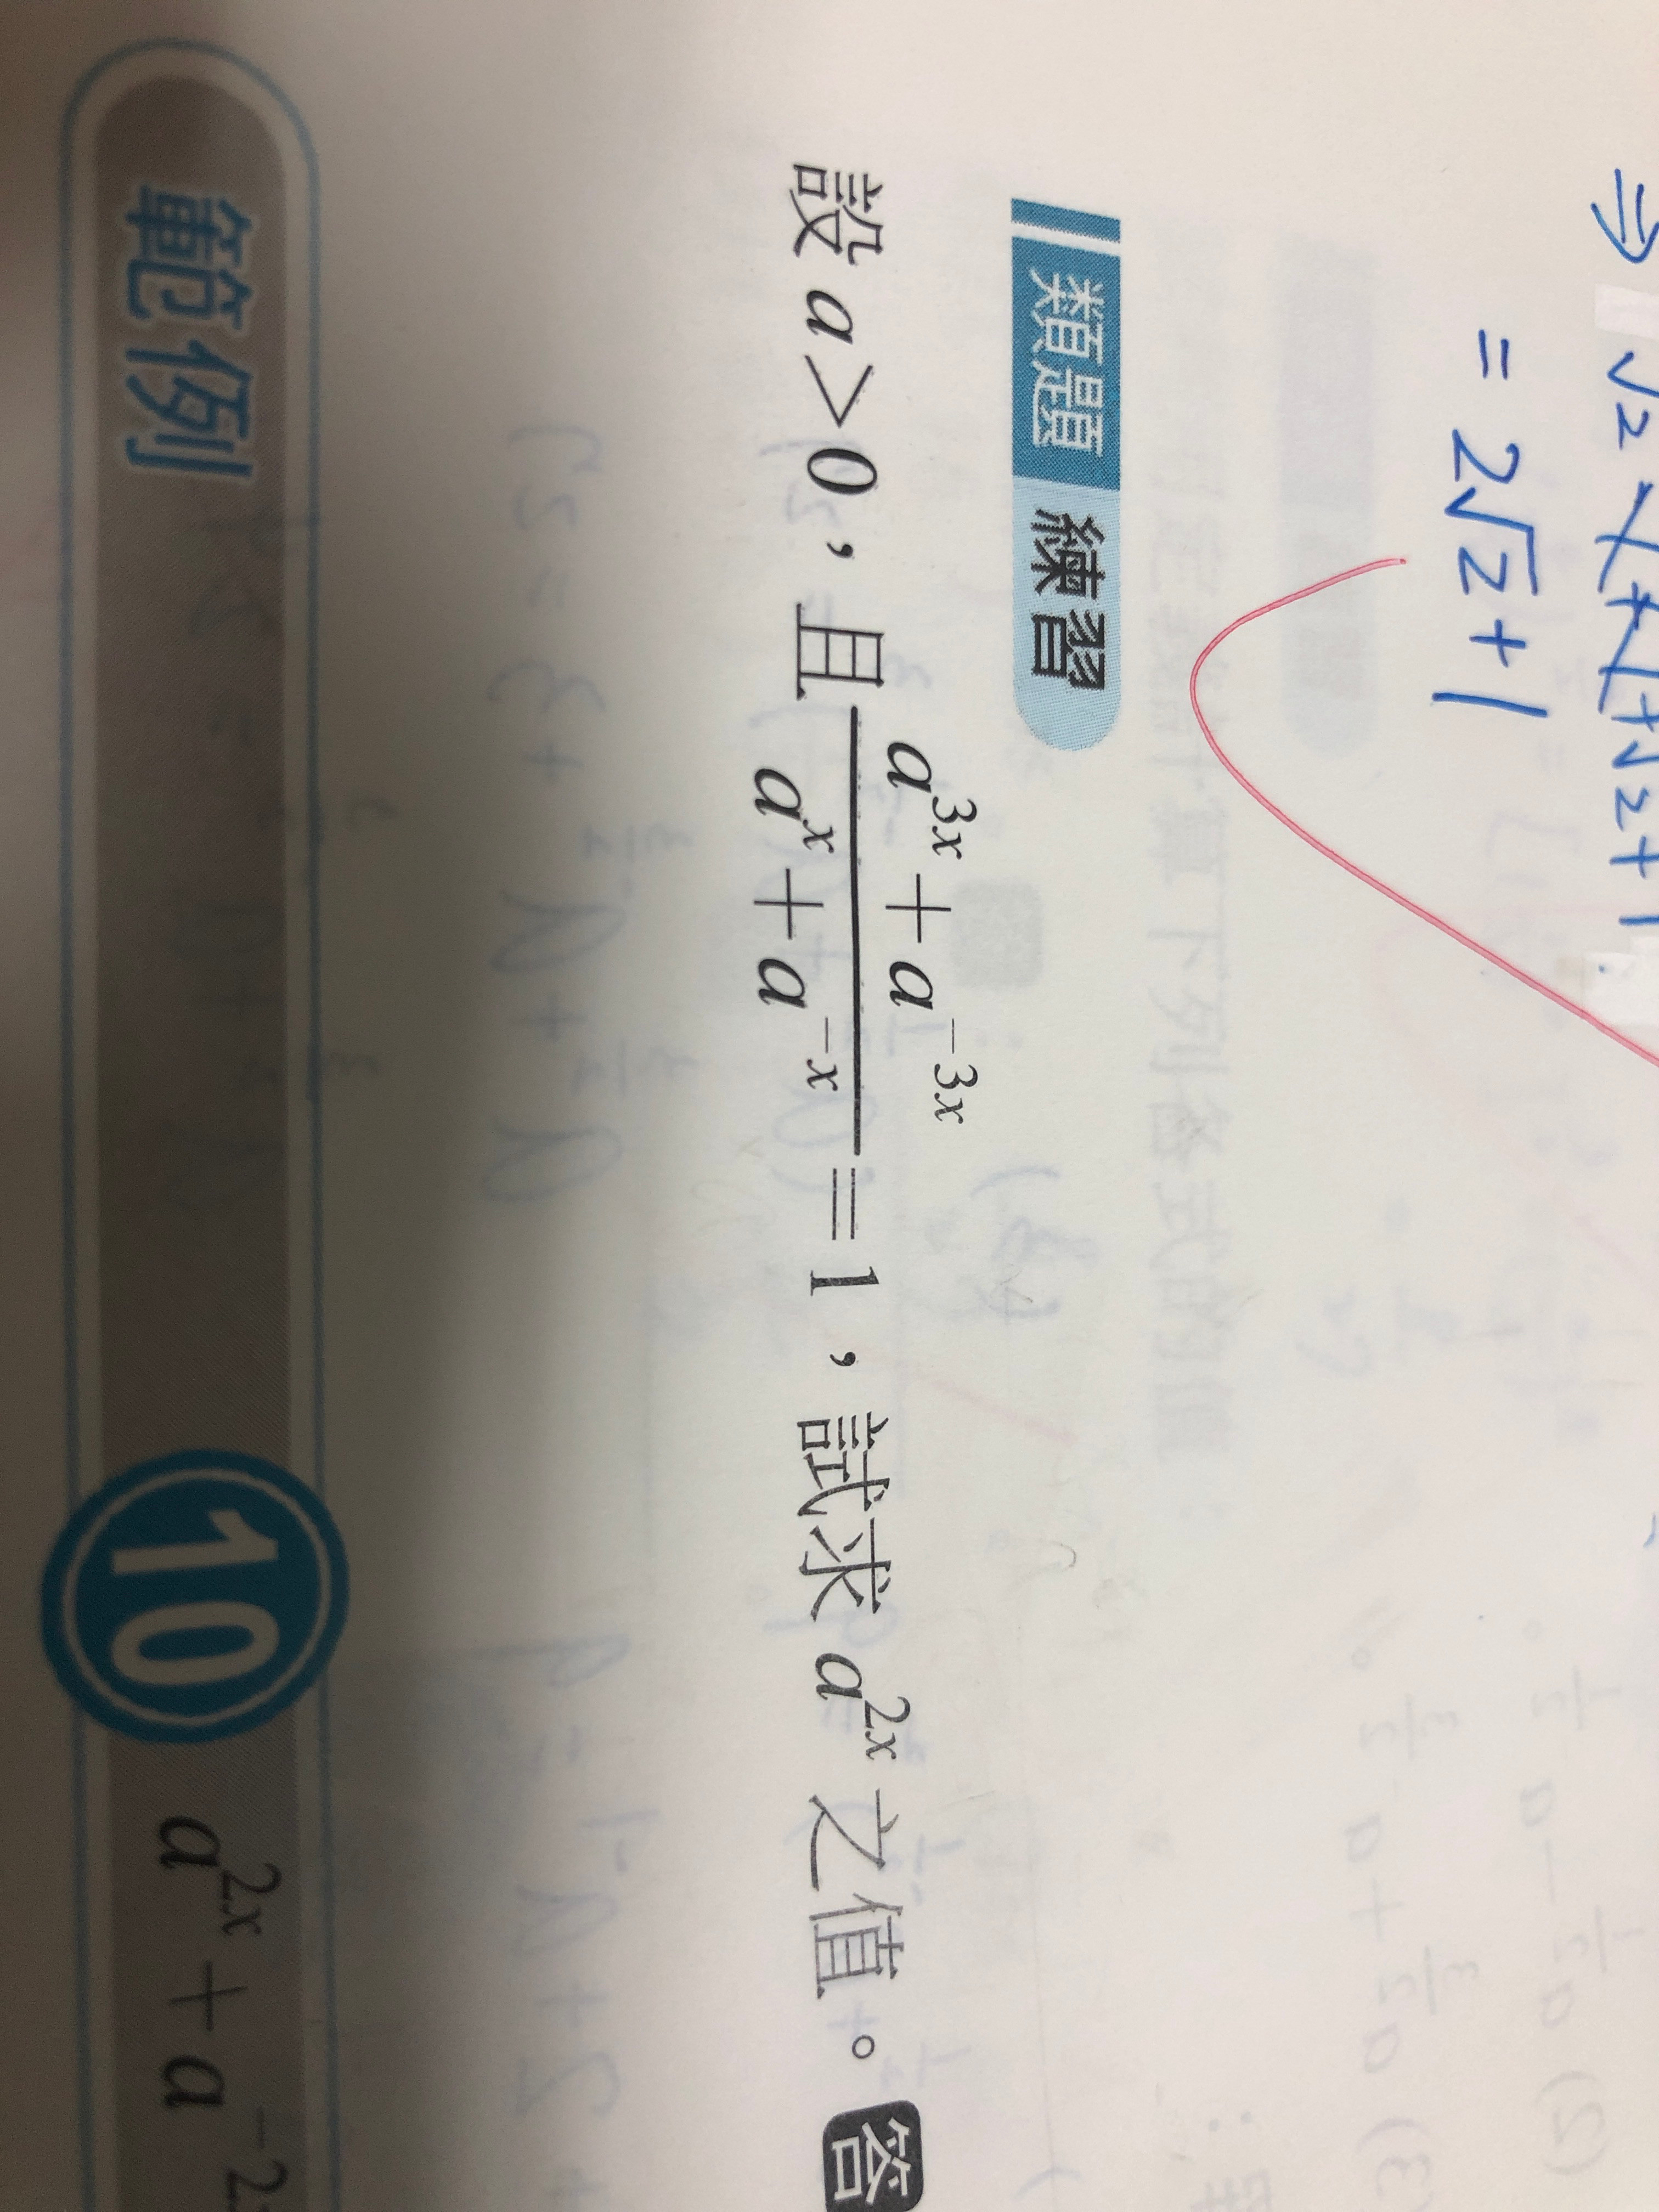 ⇒ √2
= 2√2 + 1
類題 練習
設 a > 0，且 \frac{a^{3x} + a^{-3x}}{a^x + a^{-x}} = 1，試求 a^{2x} 之值。 答
範例 10 a^{2x} + a^{-2x}